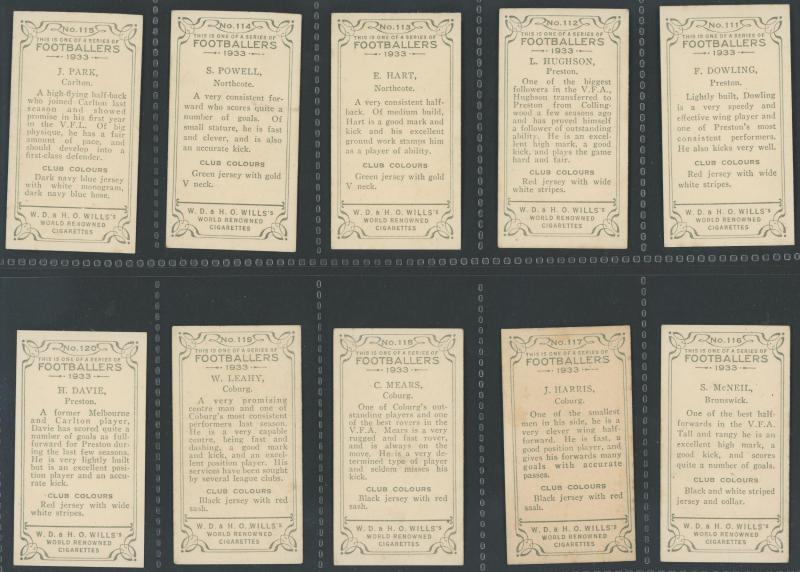 No. 115
THIS IS ONE OF A SERIES OF
FOOTBALLERS
1933
J. PARK,
Carlton.
A high-flying half-back
who joined Carlton last
season and showed
promise in his first year
in the V.F.L. Of big
physique, he has a fair
amount of pace, and
should develop into a
first-class defender.
CLUB COLOURS
Dark navy blue jersey
with white monogram,
dark navy blue hose.
W. D. & H. O. WILLS's
WORLD RENOWNED
CIGARETTES
No. 114
THIS IS ONE OF A SERIES OF
FOOTBALLERS
1933
S. POWELL,
Northcote.
A very consistent for-
ward who scores quite a
number of goals. Of
small stature, he is fast
and clever, and is also
an accurate kick.
CLUB COLOURS
Green jersey with gold
V neck.
W. D. & H. O. WILLS's
WORLD RENOWNED
CIGARETTES
No. 113
THIS IS ONE OF A SERIES OF
FOOTBALLERS
1933
E. HART,
Northcote.
A very consistent half-
back. Of medium build,
Hart is a good mark and
kick and his excellent
ground work stamps him
as a player of ability.
CLUB COLOURS
Green jersey with gold
V neck.
W. D. & H. O. WILLS's
WORLD RENOWNED
CIGARETTES
No. 112
THIS IS ONE OF A SERIES OF
FOOTBALLERS
1933
L. HUGHSON,
Preston.
One of the biggest
followers in the V.F.A.,
Hughson transferred to
Preston from Colling-
wood a few seasons ago
and has proved himself
a follower of outstanding
ability. He is an excel-
lent high mark, a good
kick, and plays the game
hard and fair.
CLUB COLOURS
Red jersey with wide
white stripes.
W. D. & H. O. WILLS's
WORLD RENOWNED
CIGARETTES
No. 111
THIS IS ONE OF A SERIES OF
FOOTBALLERS
1933
F. DOWLING,
Preston.
Lightly built, Dowling
is a very speedy and
effective wing player and
one of Preston's most
consistent performers.
He also kicks very well.
CLUB COLOURS
Red jersey with wide
white stripes.
W. D. & H. O. WILLS's
WORLD RENOWNED
CIGARETTES
No. 120
THIS IS ONE OF A SERIES OF
FOOTBALLERS
1933
H. DAVIE,
Preston.
A former Melbourne
and Carlton player,
Davie has scored quite a
number of goals as full-
forward for Preston dur-
ing the last few seasons.
He is very lightly built
but is an excellent posi-
tion player and an accu-
rate kick.
CLUB COLOURS
Red jersey with wide
white stripes.
W. D. & H. O. WILLS's
WORLD RENOWNED
CIGARETTES
No. 119
THIS IS ONE OF A SERIES OF
FOOTBALLERS
1933
W. LEAHY,
Coburg.
A very promising
centre man and one of
Coburg's most consistent
performers last season.
He is a very capable
centre, being fast and
dashing, a good mark
and kick, and an excel-
lent position player. His
services have been sought
by several league clubs.
CLUB COLOURS
Black jersey with red
sash.
W. D. & H. O. WILLS's
WORLD RENOWNED
CIGARETTES
No. 118
THIS IS ONE OF A SERIES OF
FOOTBALLERS
1933
C. MEARS,
Coburg.
One of Coburg's out-
standing players and one
of the best rovers in the
V.F.A. Mears is a very
rugged and fast rover,
and is always on the
move. He is a very de-
termined type of player
and seldom misses his
kick.
CLUB COLOURS
Black jersey with red
sash.
W. D. & H. O. WILLS's
WORLD RENOWNED
CIGARETTES
No. 117
THIS IS ONE OF A SERIES OF
FOOTBALLERS
1933
J. HARRIS,
Coburg.
One of the smallest
men in his side, he is a
very clever wing half-
forward. He is fast, a
good position player, and
gives his forwards many
goals with accurate
passes.
CLUB COLOURS
Black jersey with red
sash.
W. D. & H. O. WILLS's
WORLD RENOWNED
CIGARETTES
No. 116
THIS IS ONE OF A SERIES OF
FOOTBALLERS
1933
S. McNEIL,
Brunswick.
One of the best half-
forwards in the V.F.A.
Tall and rangy he is an
excellent high mark, a
good kick, and scores
quite a number of goals.
CLUB COLOURS
Black and white striped
jersey and collar.
W. D. & H. O. WILLS's
WORLD RENOWNED
CIGARETTES